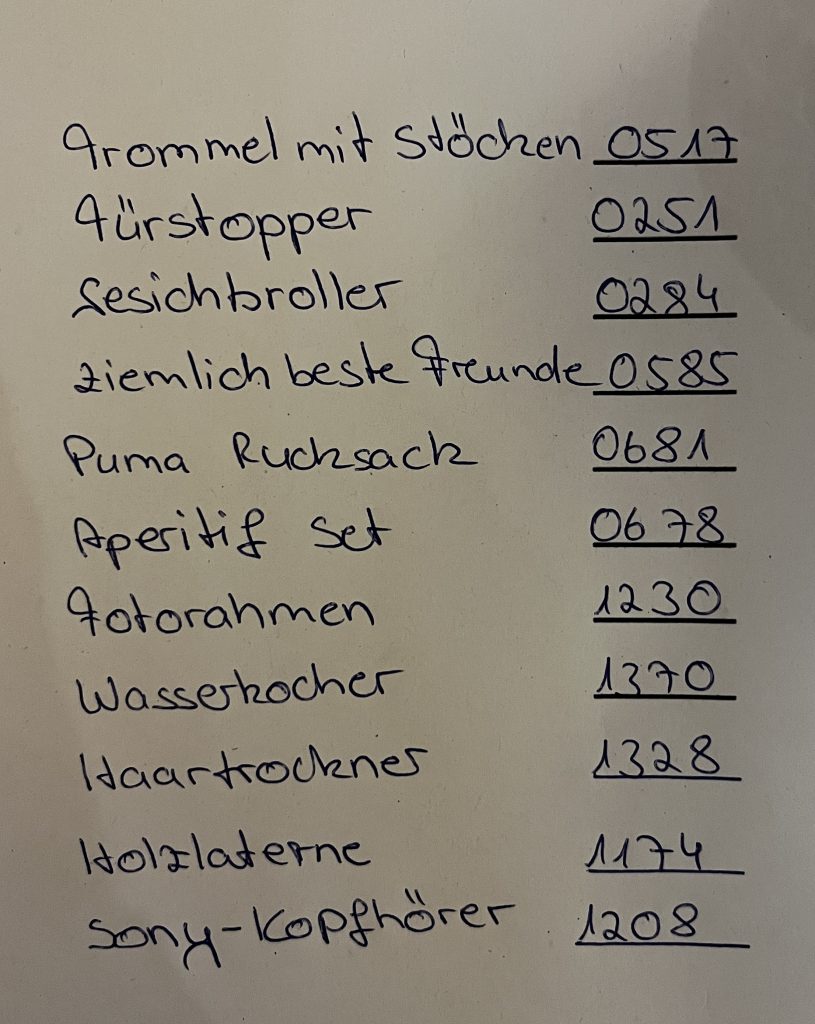 Trommel mit Stöcken 0517
Türstopper 0251
Gesichtsroller 0284
Ziemlich beste Freunde 0585
Puma Rucksack 0681
Aperitif Set 0678
Fotorahmen 1230
Wasserkocher 1370
Haartrockner 1328
Holzlaterne 1174
Sony-Kopfhörer 1208